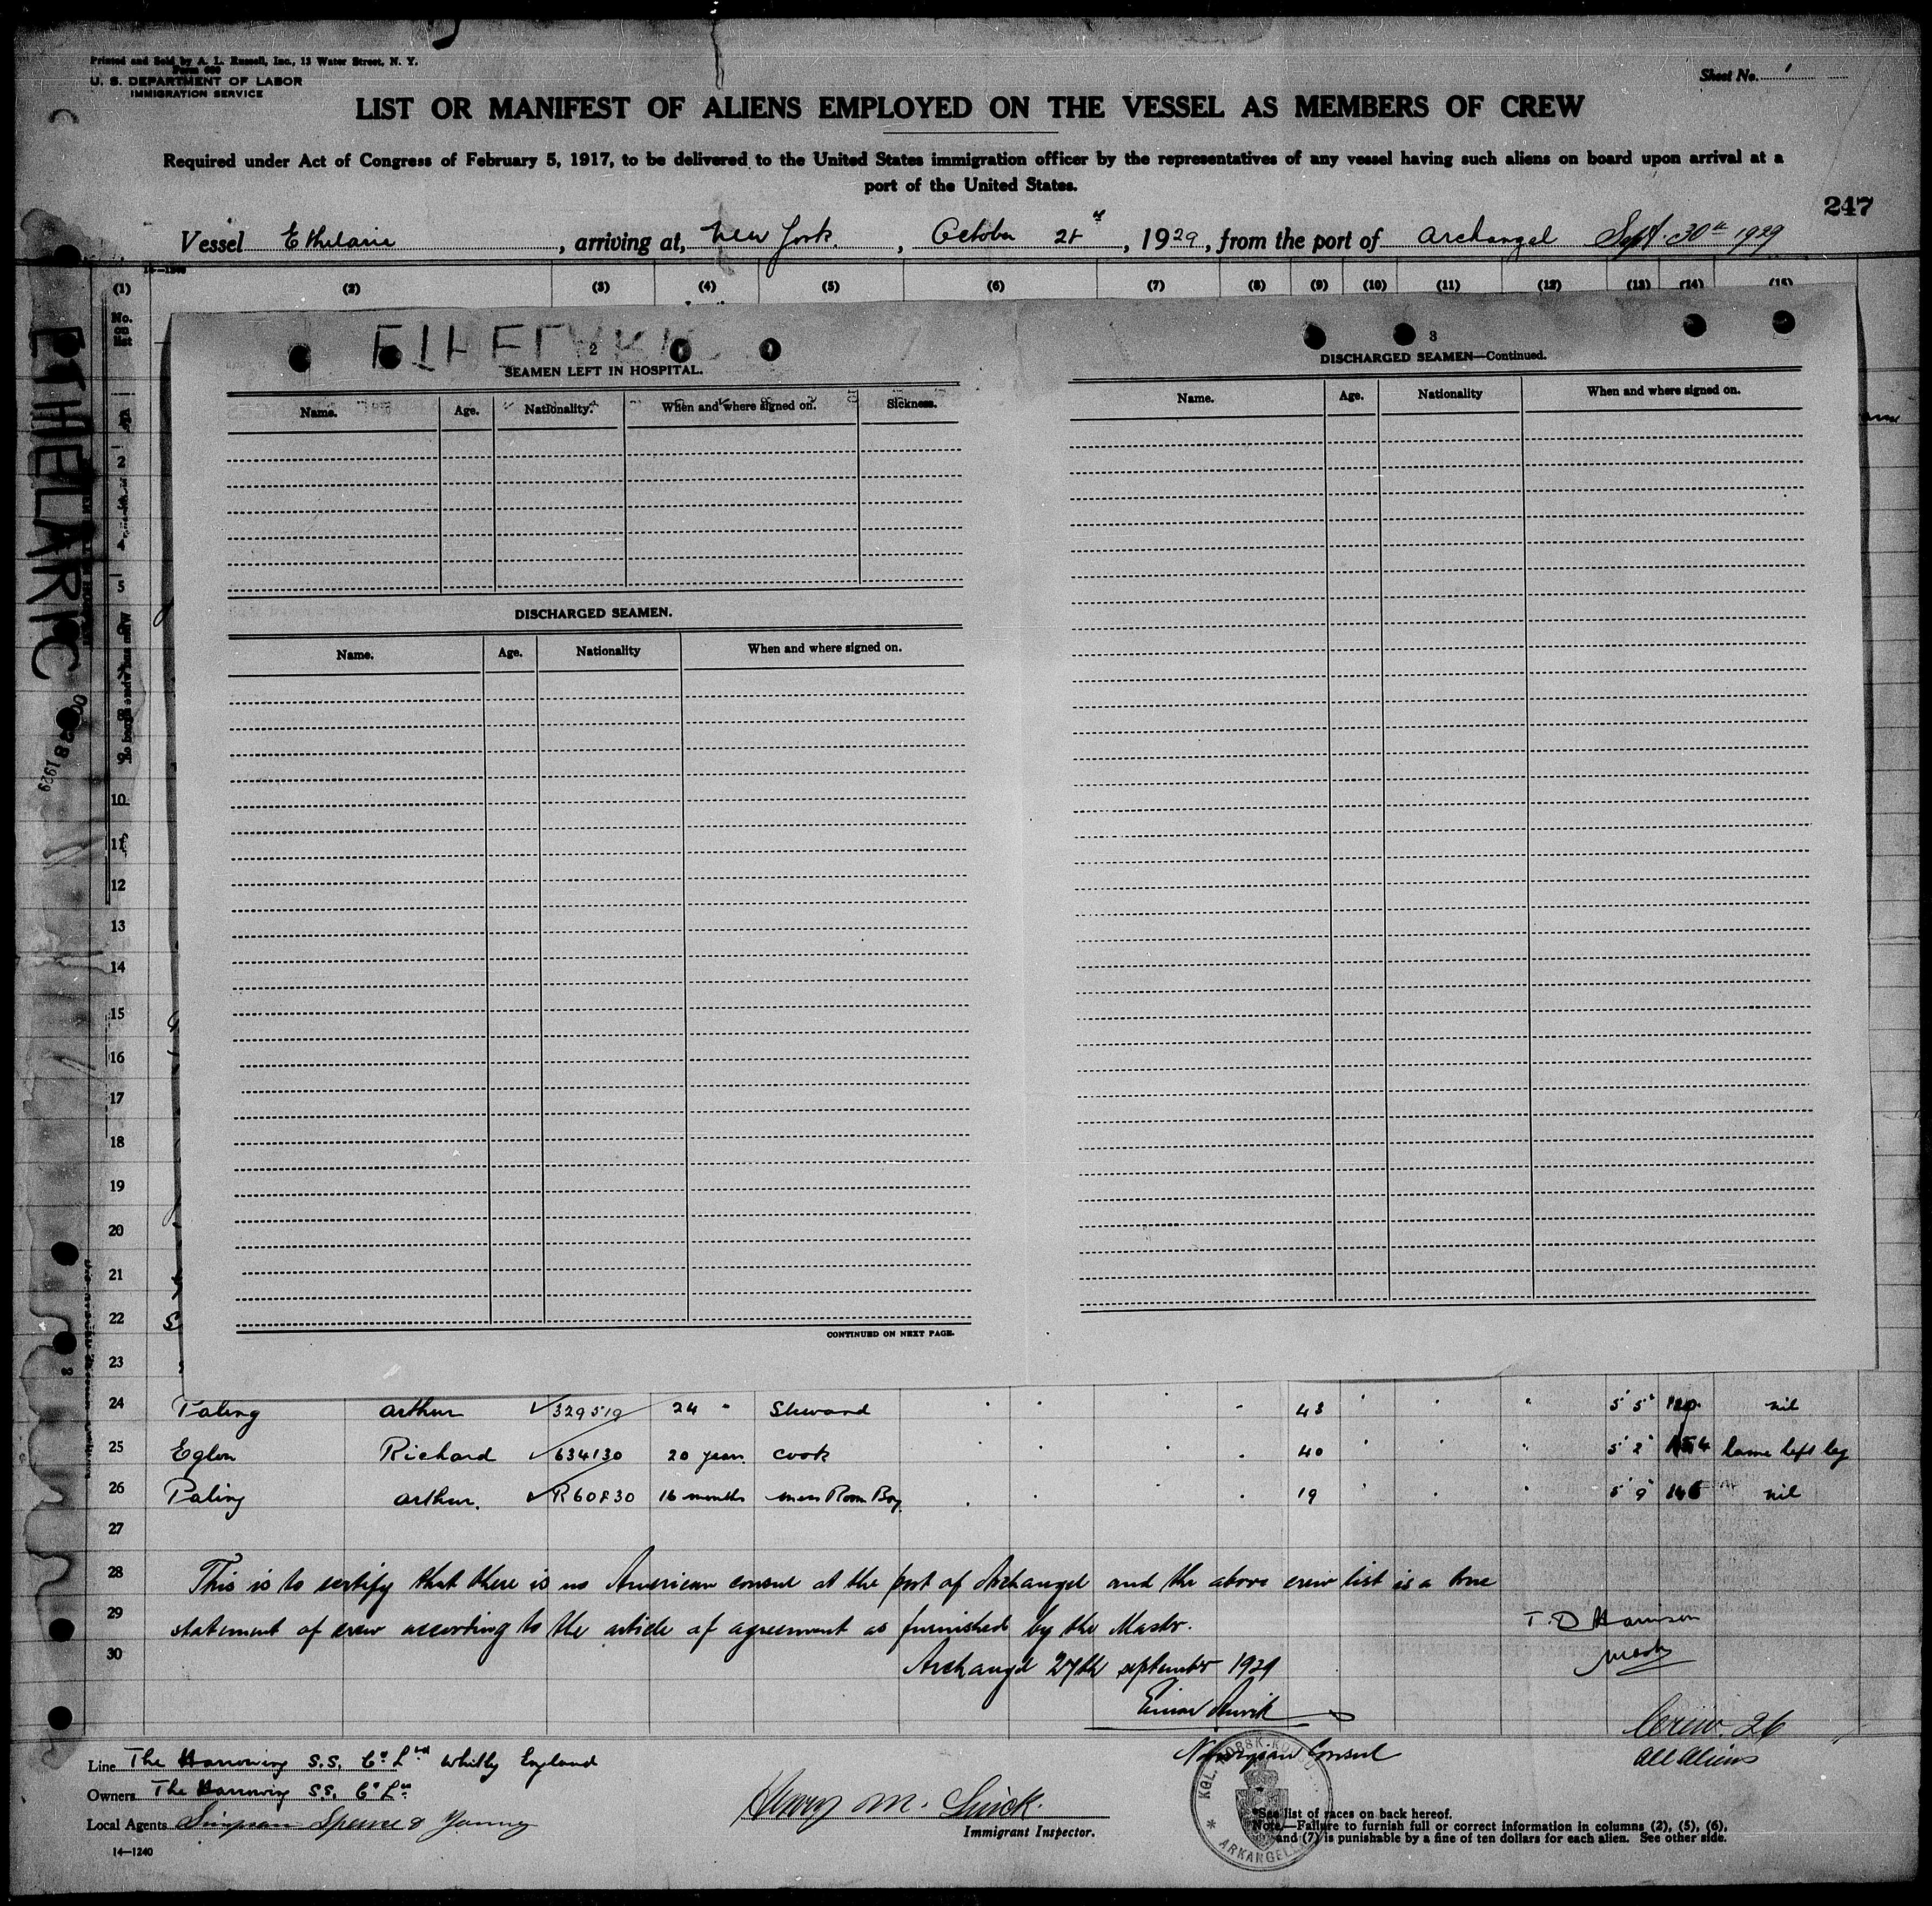 Printed and Sold by A. L. Russell, Inc., 13 Water Street, N. Y.
Form 680
U. S. DEPARTMENT OF LABOR
IMMIGRATION SERVICE
Sheet No. 1
LIST OR MANIFEST OF ALIENS EMPLOYED ON THE VESSEL AS MEMBERS OF CREW
Required under Act of Congress of February 5, 1917, to be delivered to the United States immigration officer by the representatives of any vessel having such aliens on board upon arrival at a
port of the United States.
247
Vessel Ethelaric, arriving at, New York., October 21st, 1929, from the port of Archangel Sept. 30th 1929
14—1240
(1) (2) (3) (4) (5) (6) (7) (8) (9) (10) (11) (12) (13) (14) (15)
No.
on
list
ETHELARIC
1929
2
SEAMEN LEFT IN HOSPITAL.
Name. Age. Nationality. When and where signed on. Sickness.
DISCHARGED SEAMEN.
Name. Age. Nationality When and where signed on.
CONTINUED ON NEXT PAGE.
3
DISCHARGED SEAMEN—Continued.
Name. Age. Nationality When and where signed on.
2
5
9
10
11
12
13
14
15
16
17
18
19
20
21
22
23
24 Paling Arthur 329519 24 " Steward 43 5' 5" nil
25 Eglon Richard 634130 20 years cook 40 5' 2" lame left leg
26 Paling Arthur. R60830 16 months mess Room Boy 19 5' 9" nil
27
28 This is to certify that there is no American consul at the port of Archangel and the above crew list is a true
29 statement of crew according to the article of agreement as furnished by the Master.
T. D Harrison
Master
30 Archangel 27th september 1929
Norwegian Consul
Crew. 26
All Aliens
Line The Harrowing S.S. Co Ltd Whitby England
Owners The Harrowing S.S. Co Ltd
Local Agents Simpson Spence & Young
Immigrant Inspector.
ARKANGELSK
*See list of races on back hereof.
Note.—Failure to furnish full or correct information in columns (2), (5), (6),
and (7) is punishable by a fine of ten dollars for each alien. See other side.
14—1240